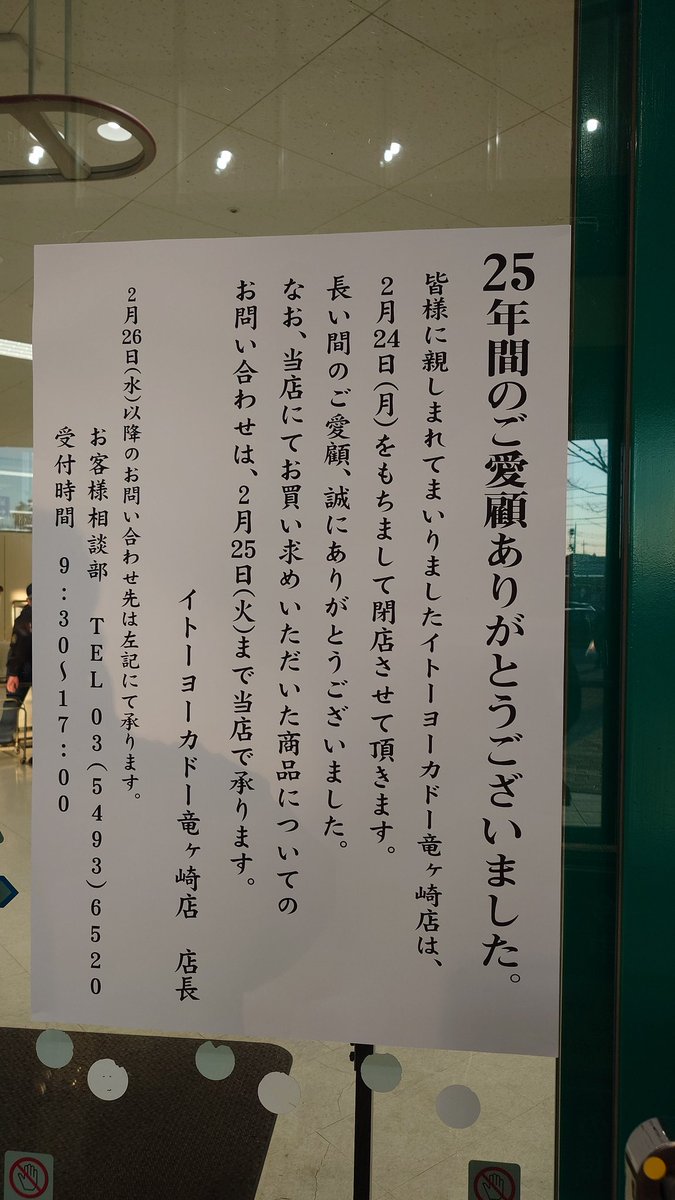 25年間のご愛顧ありがとうございました。
皆様に親しまれてまいりましたイトーヨーカドー竜ヶ崎店は、
2月24日(月)をもちまして閉店させて頂きます。
長い間のご愛顧、誠にありがとうございました。
なお、当店にてお買い求めいただいた商品についての
お問い合わせは、2月25日(火)まで当店で承ります。
イトーヨーカドー竜ヶ崎店 店長
2月26日(水)以降のお問い合わせ先は左記にて承ります。
お客様相談部 TEL 03(5493)6520
受付時間 9:30~17:00